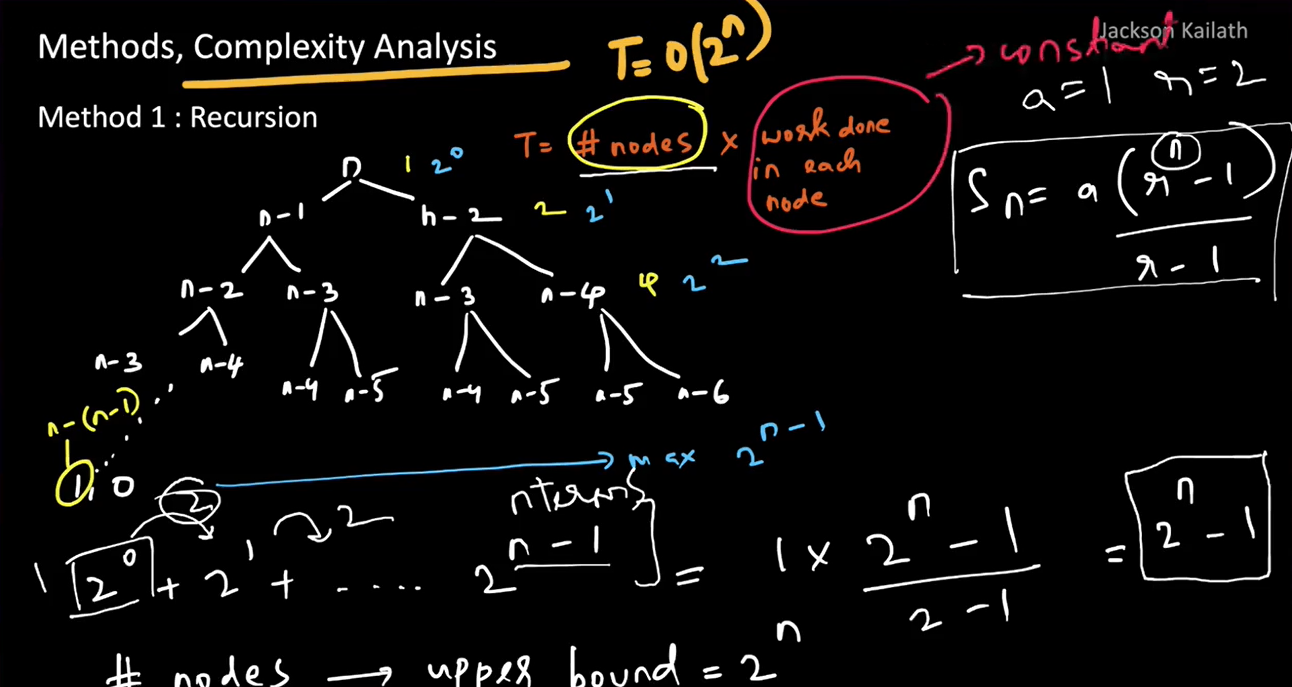 Jackson Kailath
Methods, Complexity Analysis
T= O(2^n)
→ constant
a=1 r=2
Method 1 : Recursion
T= # nodes x work done
in each
node
S_n= a (r^n - 1)
r - 1
n 1 2^0
n-1 n-2 2 2^1
n-2 n-3 n-3 n-4 4 2^2
n-3 n-4 n-4 n-5 n-4 n-5 n-5 n-6
n-(n-1)
1, 0 → max 2^n-1
2 2 n terms
1 2^0 + 2^1 + ..... 2^n-1 ] = 1 x 2^n - 1 = 2^n - 1
2 - 1
# nodes → upper bound = 2^n